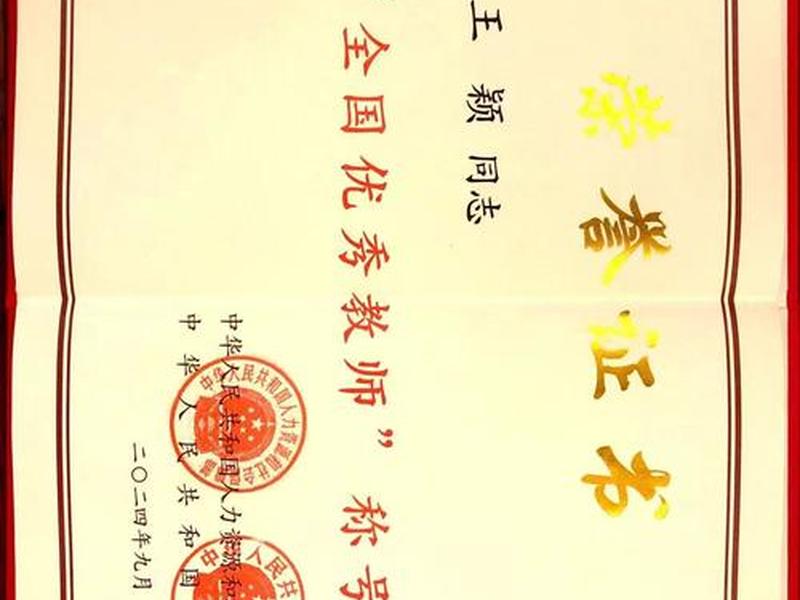 荣誉证书
王颖同志
全国优秀教师”称号
中华人民共和国人力资源和
中华人民共和国
二〇二四年九月
中华人民共和国人力资源和社会
人民共